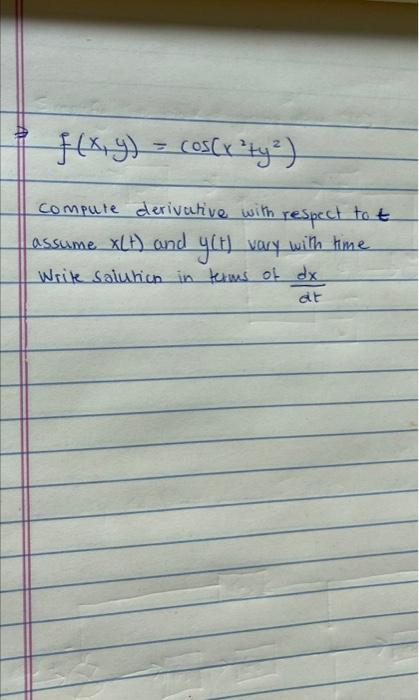 ⇒ f(x,y) = cos(x²+y²)
compute derivative with respect to t
assume x(t) and y(t) vary with time
Write solution in terms of dx/dt